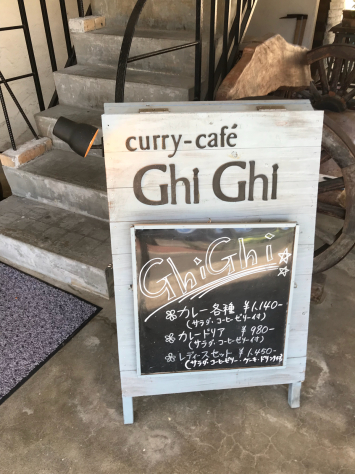 curry-café
Ghi Ghi
GhiGhi
カレー各種 ¥1.140-
(サラダ・コーヒーゼリー付)
カレードリア ¥980-
(サラダ・コーヒーゼリー付)
レディースセット ¥1.450-
(サラダ・コーヒーゼリー・ケーキ・ドリンク付)